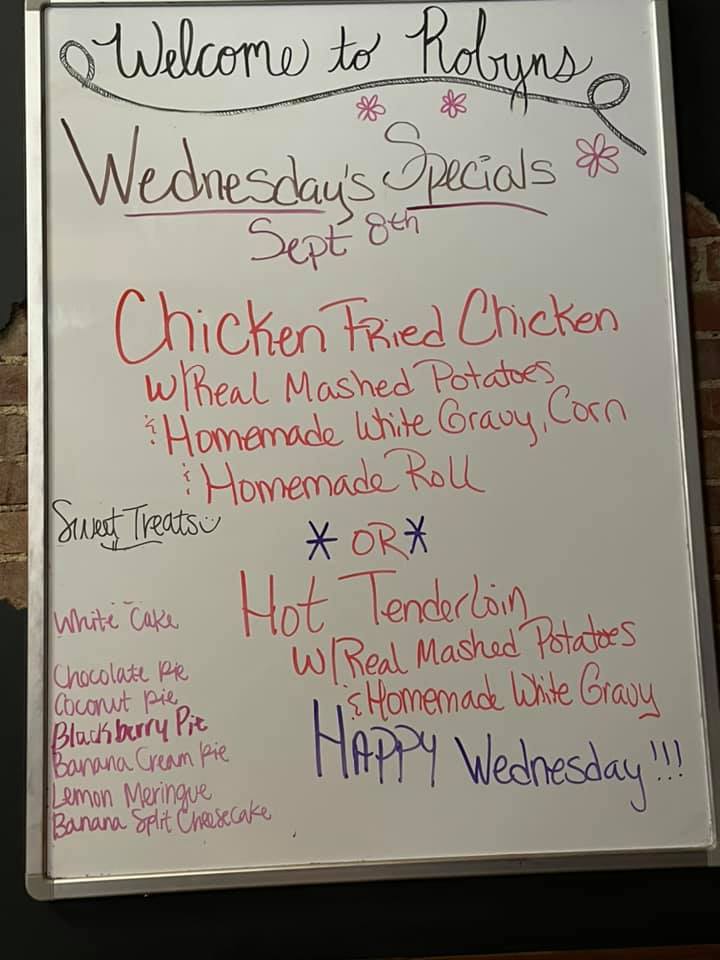 Welcome to Robyns
Wednesday's Specials
Sept 8th
Chicken Fried Chicken
w/Real Mashed Potatoes
& Homemade White Gravy, Corn
& Homemade Roll
* OR *
Hot Tenderloin
w/Real Mashed Potatoes
& Homemade White Gravy
HAPPY Wednesday!!!
Sweet Treats
White Cake
Chocolate Pie
Coconut Pie
Blackberry Pie
Banana Cream Pie
Lemon Meringue
Banana Split Cheesecake